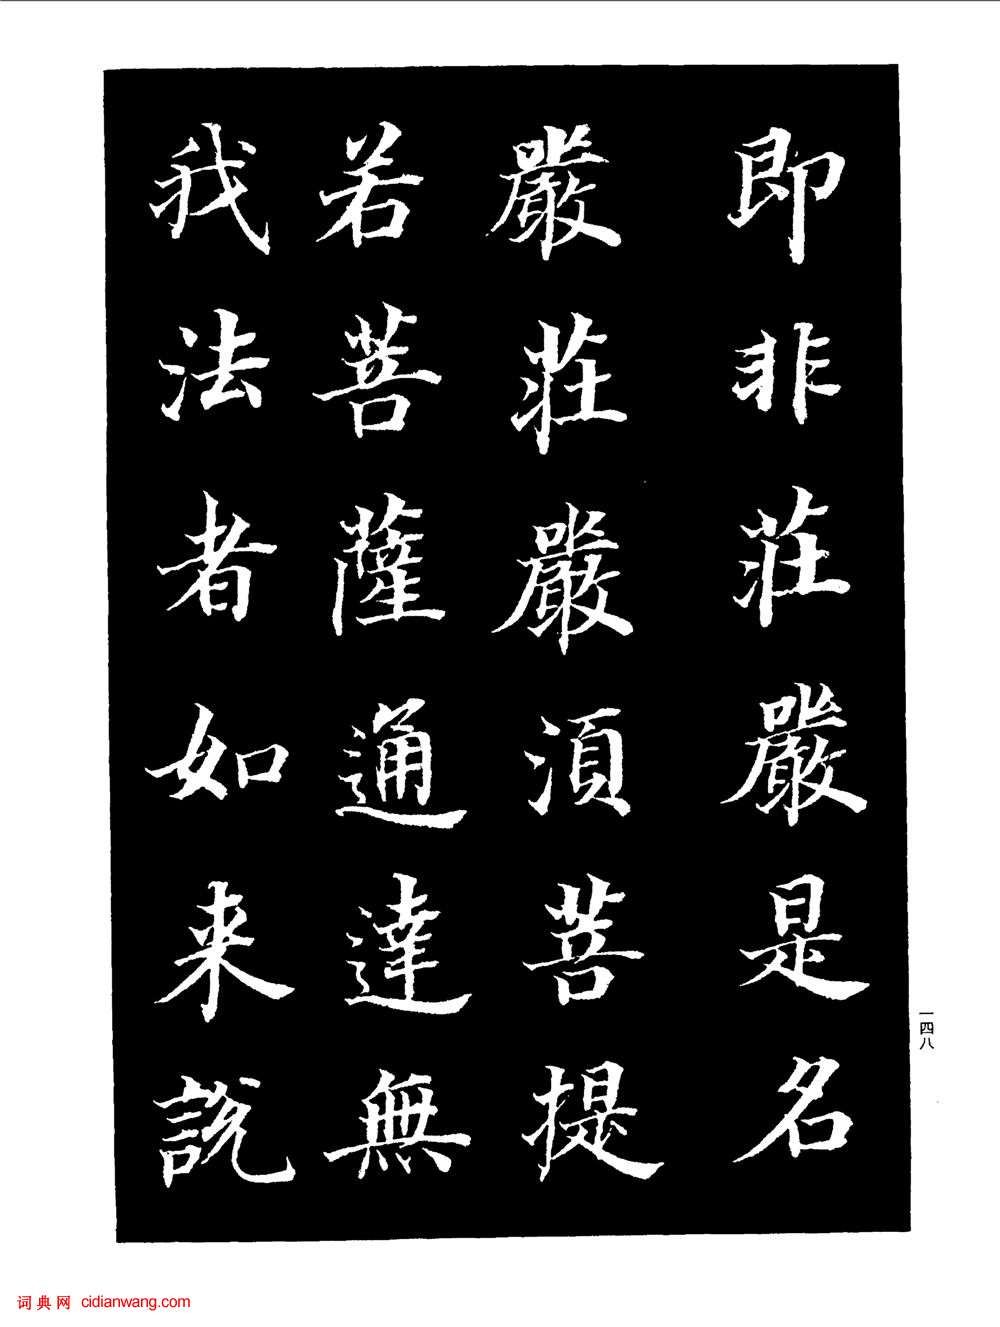 即非莊嚴是名
嚴莊嚴須菩提
若菩薩通達無
我法者如来説
一四八
词典网 cidianwang.com